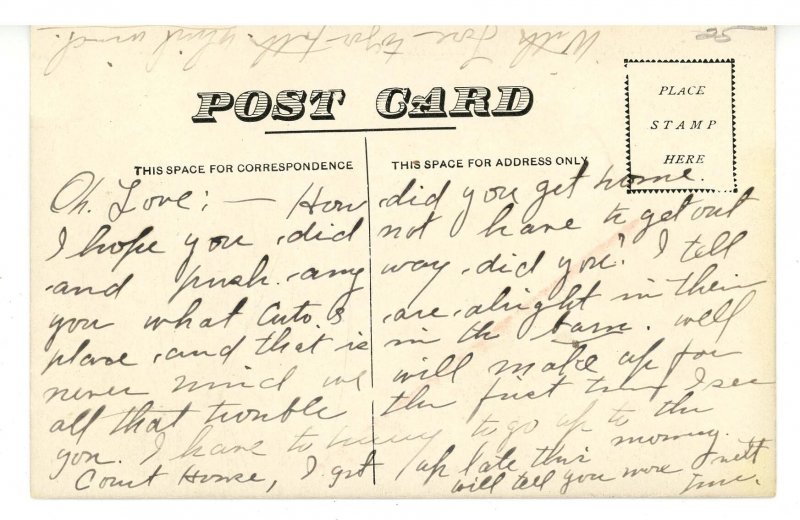 With Love
25
POST CARD
PLACE
STAMP
HERE
THIS SPACE FOR CORRESPONDENCE
THIS SPACE FOR ADDRESS ONLY
Oh. Love; — How did you get home.
I hope you did not have to get out
and push any way did you? I tell
you what Autos are alright in their
place and that is in the barn. well
never mind we will make up for
all that trouble the first time I see
you. I have to hurry to go up to the
Court House, I got up late this morning.
will tell you more next
time.